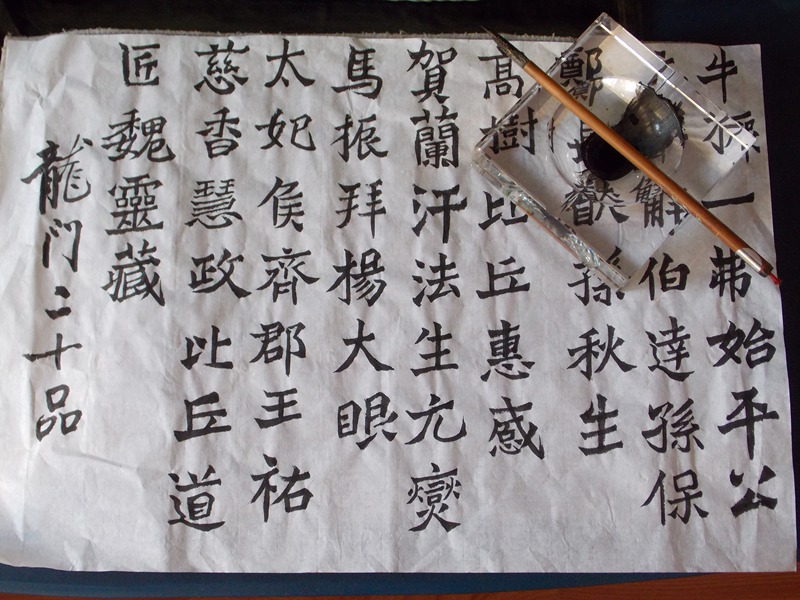 牛橛一弗始平公
解伯達孫保
鄭長猷孫秋生
高樹比丘惠感
賀蘭汗法生元燮
馬振拜楊大眼
太妃侯齊郡王祐
慈香慧政比丘道
匠魏靈藏
龍门二十品